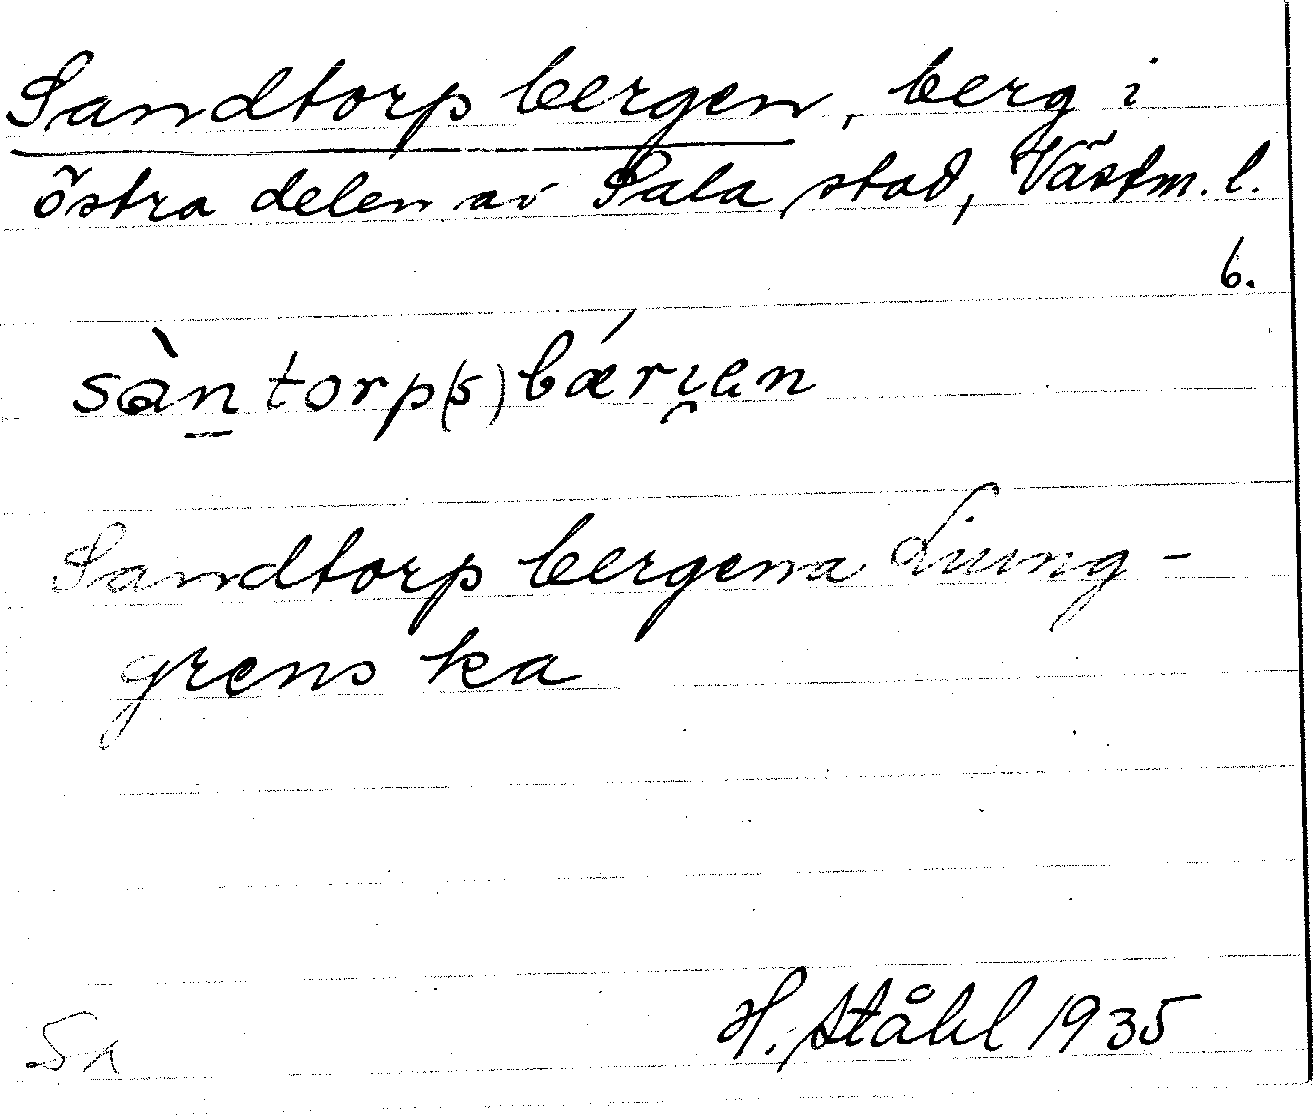 Sandtorpbergen, berg i
östra delen av Sala stad, Västm. l.
6.
sàntorp(s)bǽrɪ̯en
Sandtorpbergena Liung-
grens ka
H. Ståhl 1935